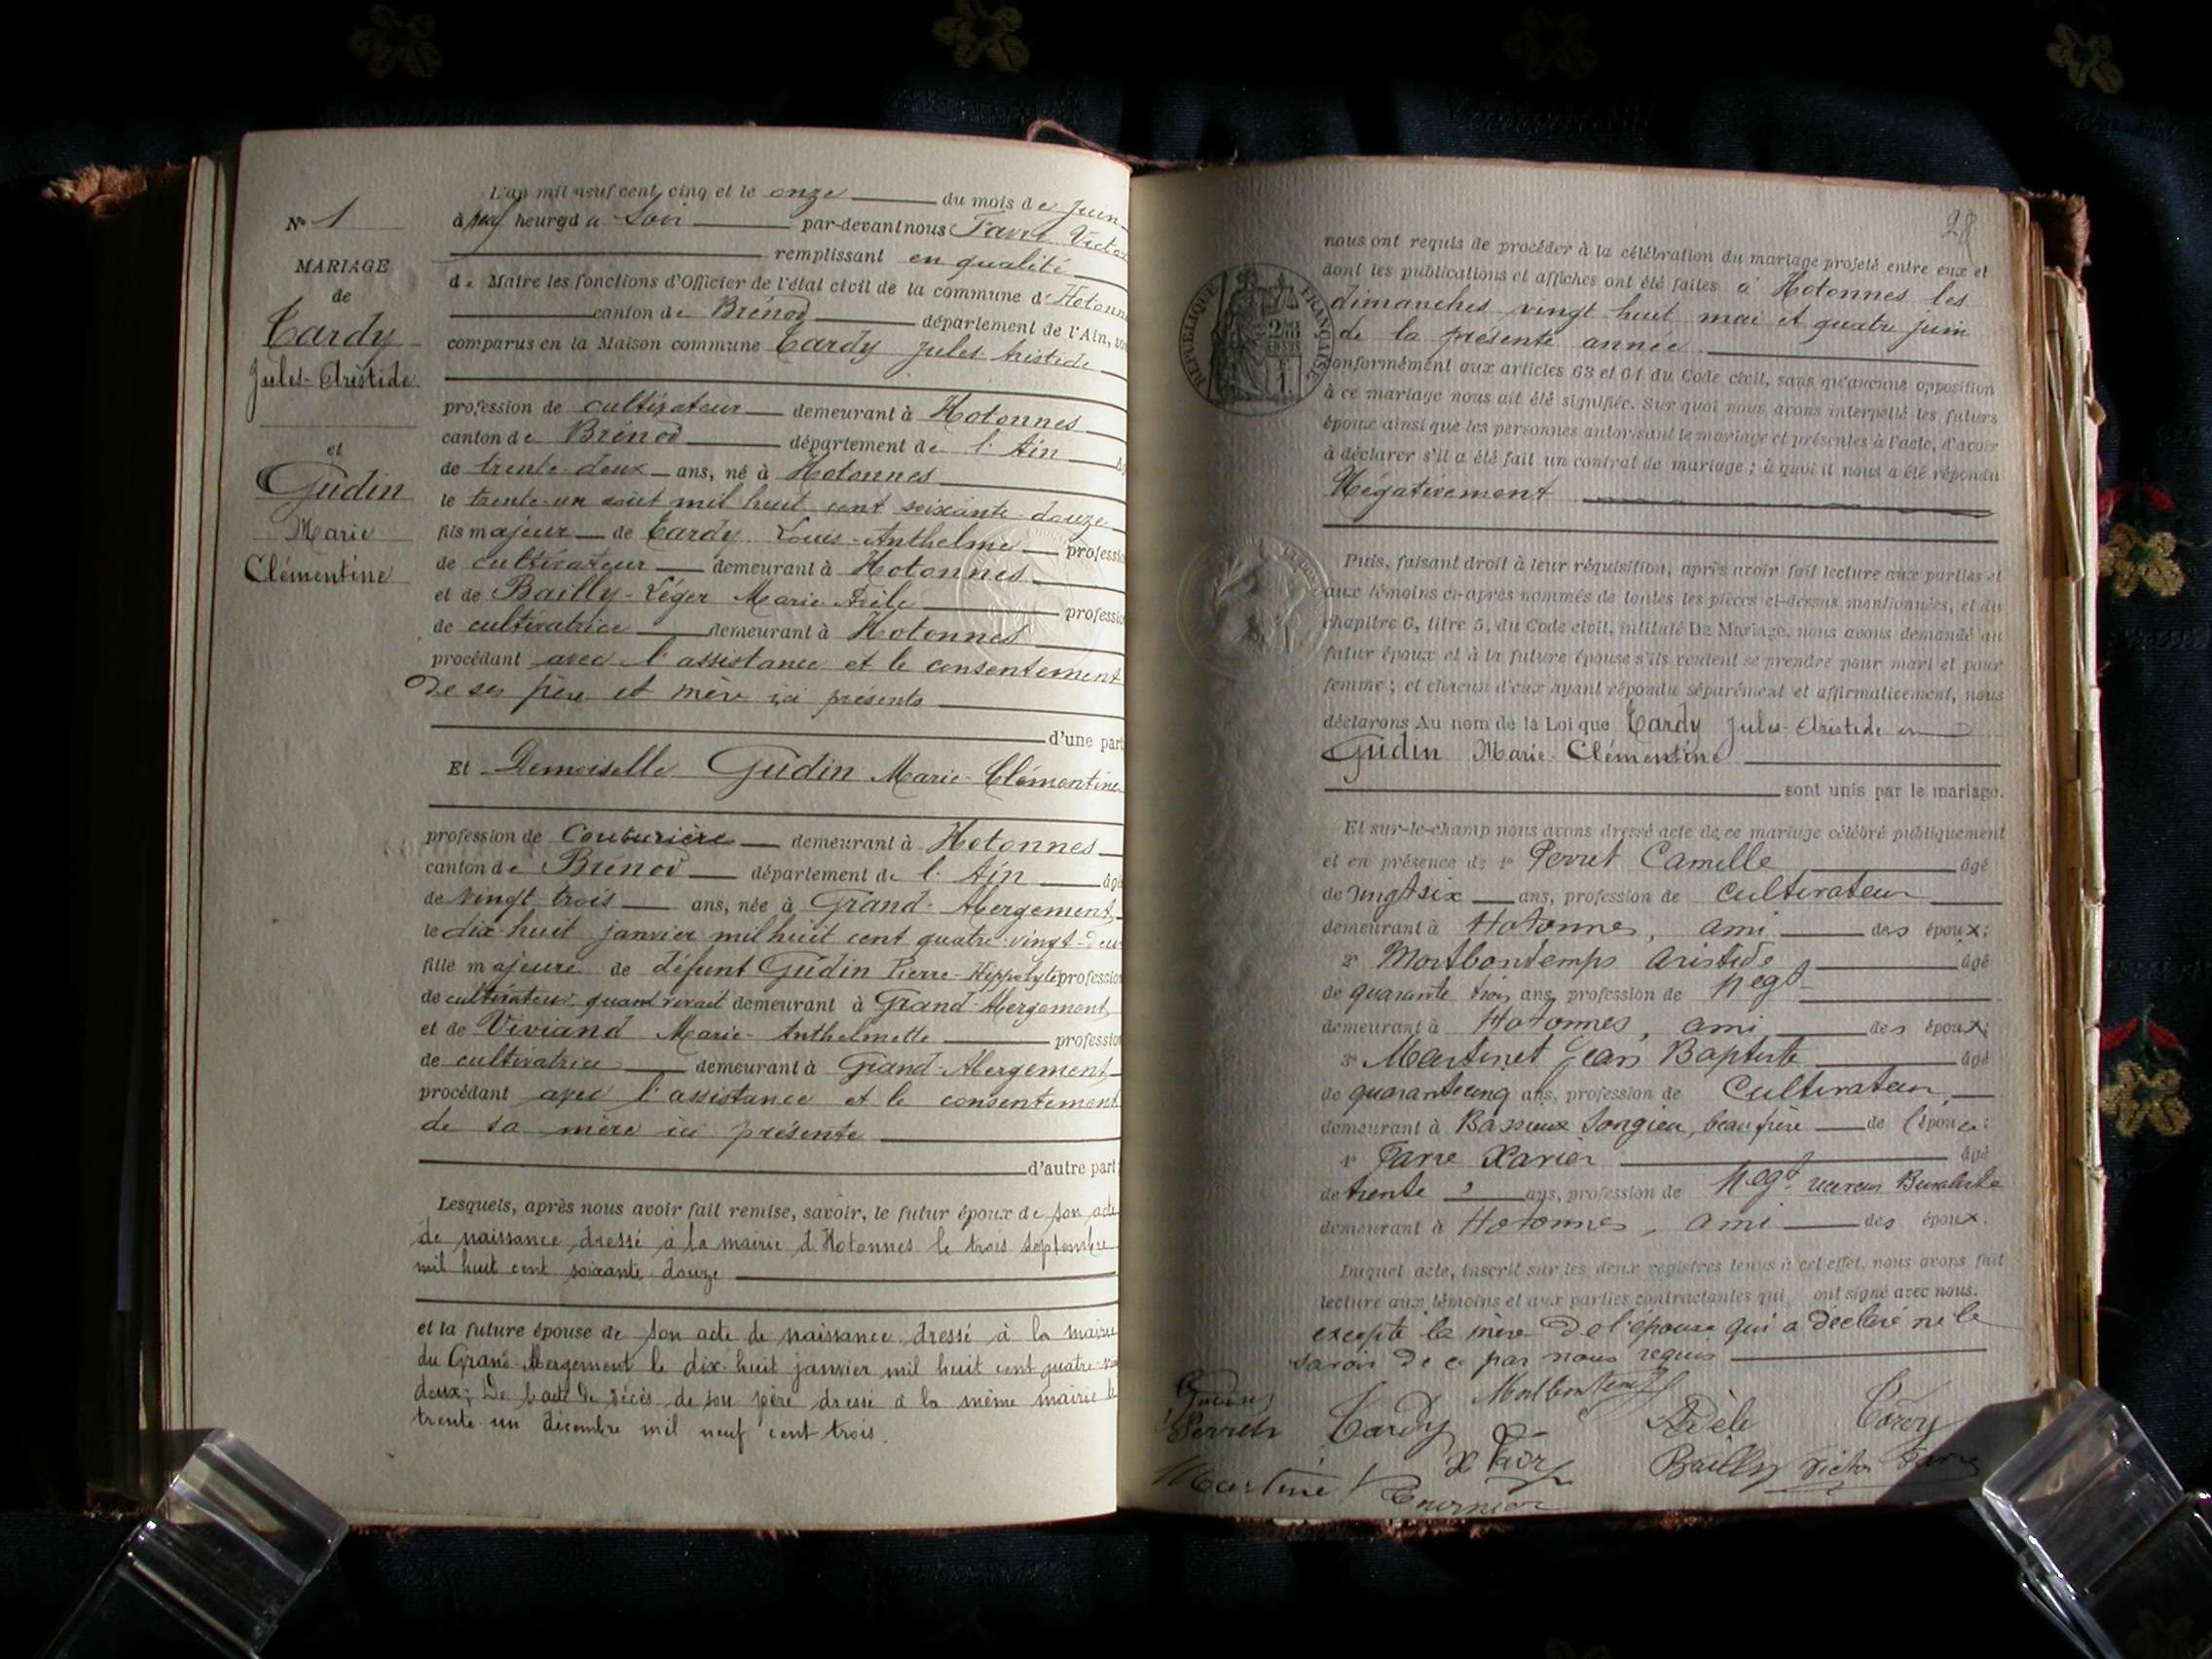 N° 1
MARIAGE
de
Tardy
Jules-Aristide
et
Gudin
Marie
Clémentine
L'an mil neuf cent cinq et le onze du mois de juin
à neuf heures du soir par-devant nous Favre Victor
remplissant en qualité
de Maire les fonctions d'Officier de l'état civil de la commune d'Hotonnes
canton de Brénod département de l'Ain,
comparus en la Maison commune Tardy Jules-Aristide
profession de cultivateur demeurant à Hotonnes
canton de Brénod département de l'Ain
de trente deux ans, né à Hotonnes
le trente un août mil huit cent soixante-douze
fils majeur de Tardy Louis-Anthelme profession
de cultivateur demeurant à Hotonnes
et de Bailly-Léger Marie Adèle profession
de cultivatrice demeurant à Hotonnes
procédant avec l'assistance et le consentement
de ses père et mère ici présents
d'une part
Et Demoiselle Gudin Marie-Clémentine
profession de Couturière demeurant à Hotonnes
canton de Brénod département de l'Ain âgé
de vingt trois ans, née à Grand-Abergement,
le dix-huit janvier mil huit cent quatre-vingt-deux
fille majeure de défunt Gudin Pierre-Hippolyte profession
de cultivateur quand vivait demeurant à Grand-Abergement,
et de Viviand Marie-Anthelmette profession
de cultivatrice demeurant à Grand-Abergement
procédant avec l'assistance et le consentement
de sa mère ici présente
d'autre part
Lesquels, après nous avoir fait remise, savoir, le futur époux de son acte
de naissance dressé à la mairie d'Hotonnes le trois septembre
mil huit cent soixante douze
et la future épouse de son acte de naissance dressé à la mairie
du Grand-Abergement le dix-huit janvier mil huit cent quatre-
deux; De l'acte de décès de son père dressé à la même mairie le
trente-un décembre mil neuf cent trois.
28
RÉPUBLIQUE FRANÇAISE
nous ont requis de procéder à la célébration du mariage projeté entre eux et
dont les publications et affiches ont été faites à Hotonnes les
dimanches vingt-huit mai et quatre juin
de la présente année
conformément aux articles 63 et 64 du Code civil, sans qu'aucune opposition
à ce mariage nous ait été signifiée. Sur quoi nous avons interpellé les futurs
époux ainsi que les personnes autorisant le mariage et présentes à l'acte, d'avoir
à déclarer s'il a été fait un contrat de mariage; à quoi il nous a été répondu
Négativement
Puis, faisant droit à leur réquisition, après avoir fait lecture aux parties et
aux témoins ci-après nommés de toutes les pièces ci-dessus mentionnées, et du
chapitre 6, titre 5, du Code civil, intitulé Du Mariage, nous avons demandé au
futur époux et à la future épouse s'ils veulent se prendre pour mari et pour
femme; et chacun d'eux ayant répondu séparément et affirmativement, nous
déclarons Au nom de la Loi que Tardy Jules-Aristide et
Gudin Marie-Clémentine
sont unis par le mariage.
Et sur-le-champ nous avons dressé acte de ce mariage célébré publiquement
et en présence de 1° Perret Camille âgé
de vingt six ans, profession de Cultivateur
demeurant à Hotonnes, ami des époux;
2° Montbontemps Aristide âgé
de quarante trois ans, profession de Négt
demeurant à Hotonnes, ami des époux;
3° Martinet Jean Baptiste âgé
de quarante cinq ans, profession de Cultivateur,
demeurant à Bassieux Songieu, beau frère de l'épouse;
4° Favre Xavier âgé
de trente ans, profession de Négt receveur Buraliste
demeurant à Hotonnes, ami des époux.
Duquel acte, inscrit sur les deux registres tenus à cet effet, nous avons fait
lecture aux témoins et aux parties contractantes qui ont signé avec nous.
excepté la mère de l'épouse qui a déclaré ne le
savoir de ce par nous requis
Montbontemps
Gudin
Perret Tardy Adèle Tardy
X Favre Bailly Victor Favre
Martinet